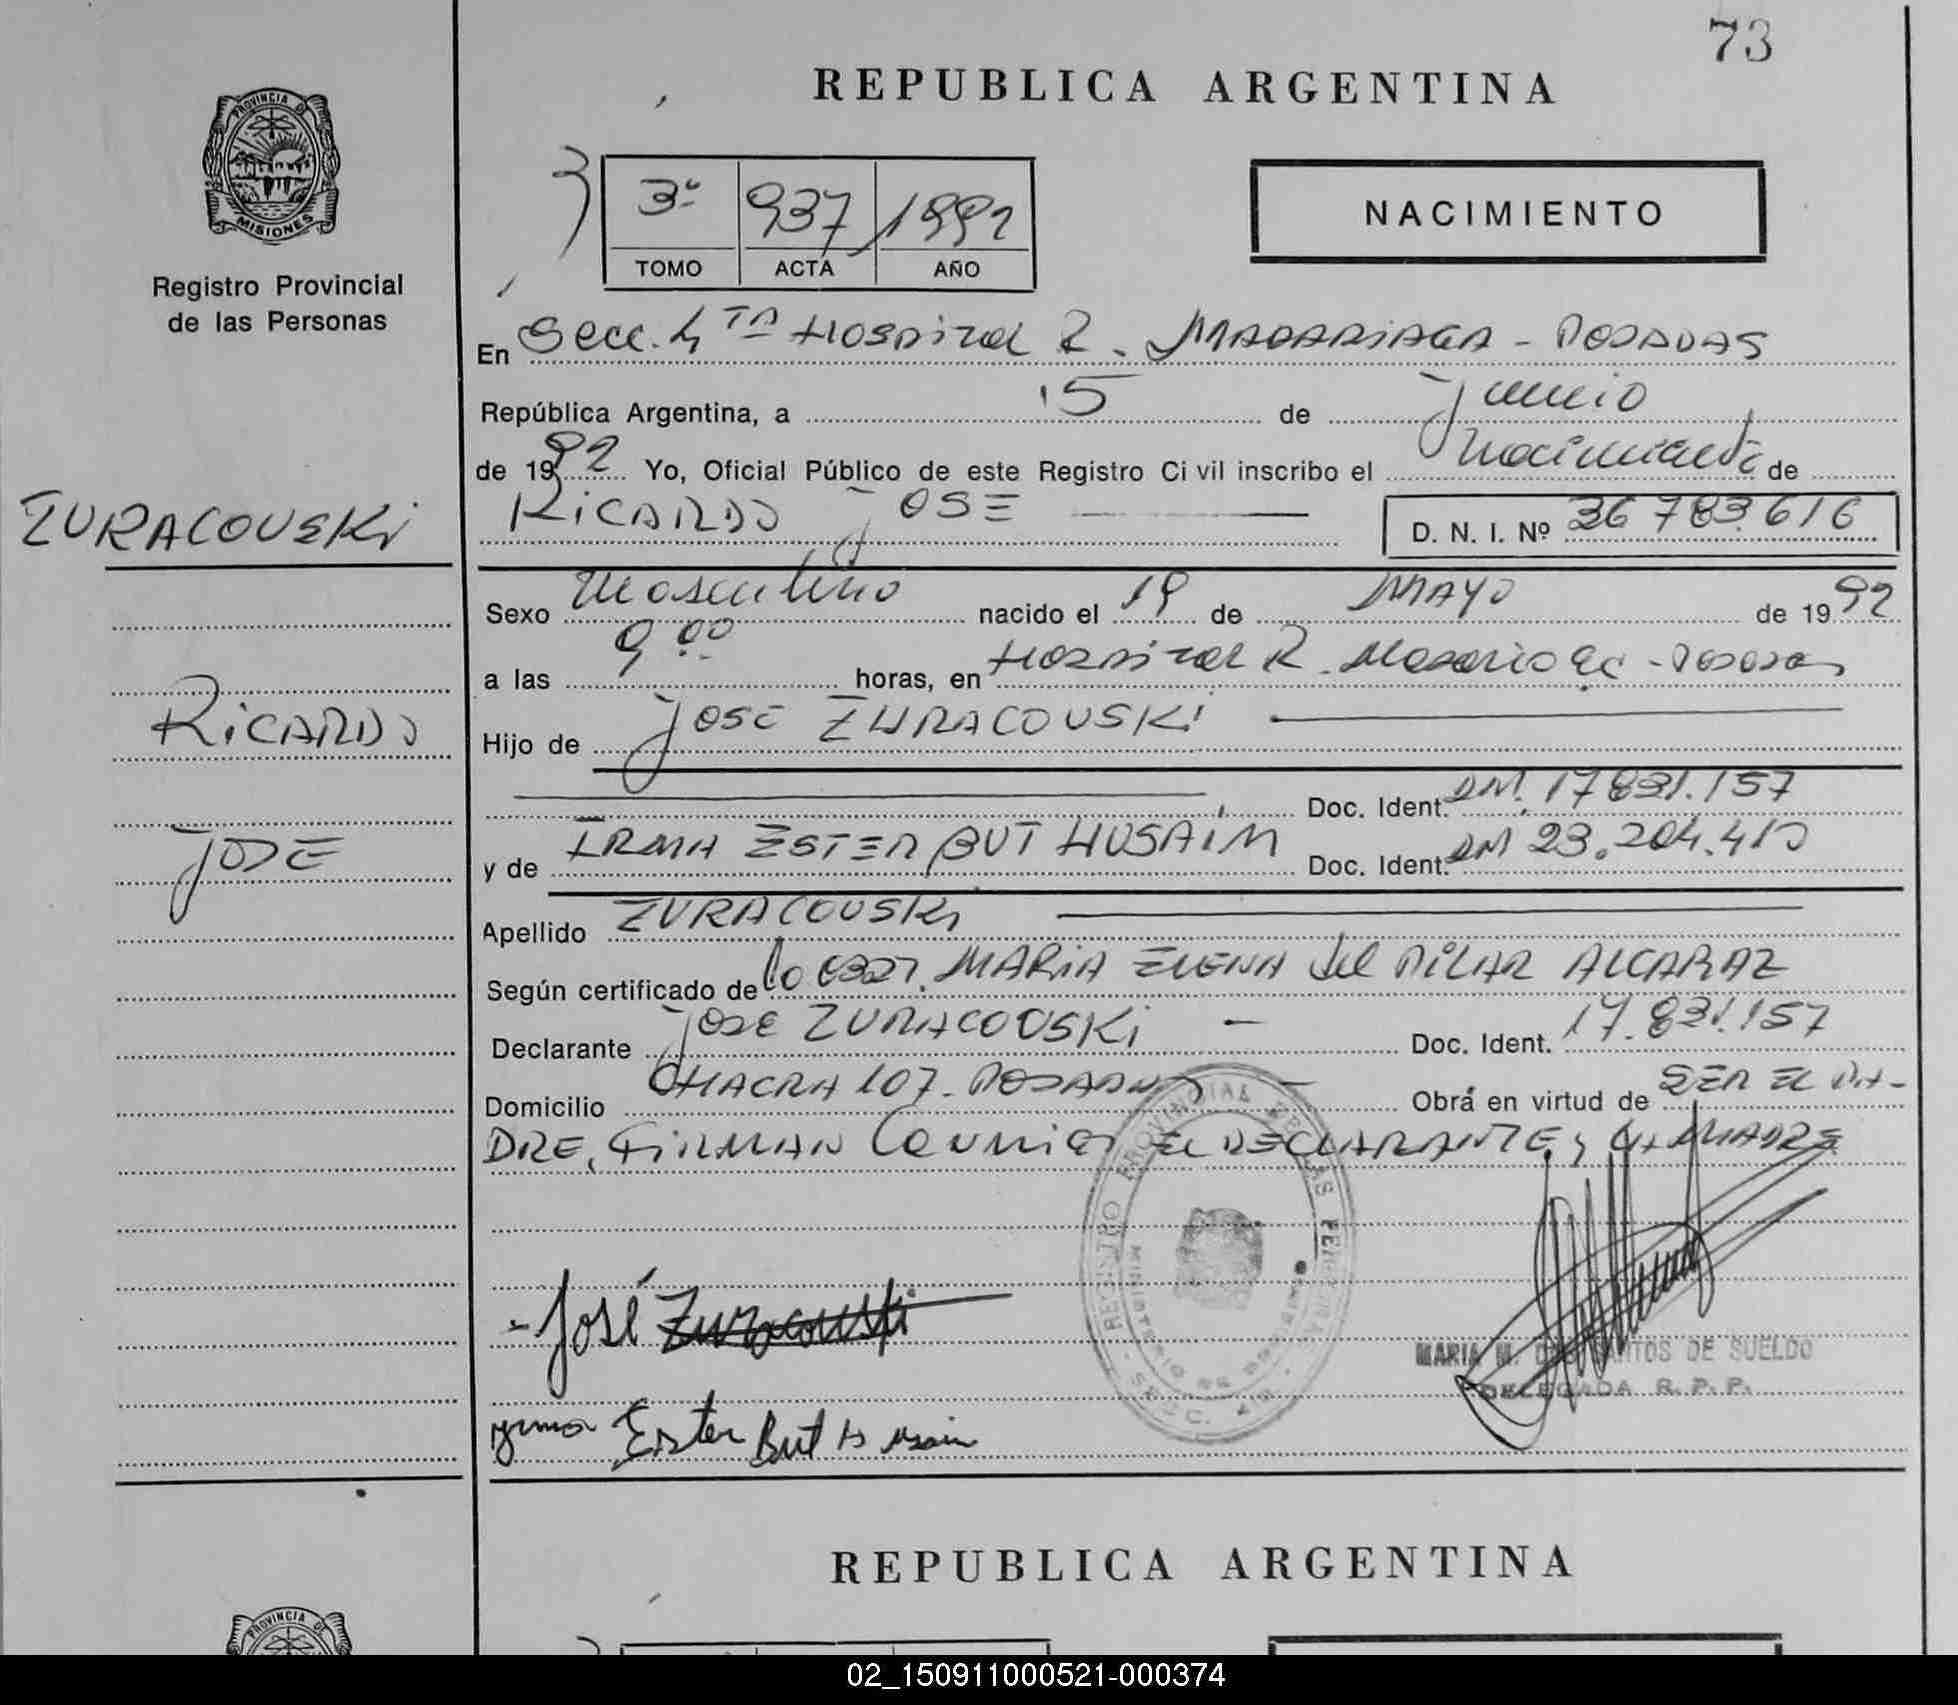 73
REPUBLICA ARGENTINA
PROVINCIA DE
MISIONES
Registro Provincial
de las Personas
3º 937 1992
TOMO ACTA AÑO
NACIMIENTO
En Secc. 4TA Hospital R. MADARIAGA - POSADAS
República Argentina, a 15 de Junio
de 1992 Yo, Oficial Público de este Registro Civil inscribo el Nacimiento de
ZURACOUSKi
RiCARDO JOSE D. N. I. Nº 36 783.616
Sexo Masculino nacido el 19 de MAYO de 1992
a las 9,00 horas, en Hospital R. Madariaga - Posadas
RiCARDO
Hijo de JOSE ZURACOUSKi
Doc. Ident. DNI. 17 831.157
JOSE
y de IRMA ESTER BUT HUSAIM Doc. Ident. DNI 23.204.410
Apellido ZURACOUSKi
Según certificado de MARiA ELENA del PiLAR ALCARAZ
Declarante JOSE ZURACOUSKi - Doc. Ident. 17.831.157
Domicilio CHACRA 107 - POSADAS - Obrá en virtud de SER EL PA-
DRE, FiRMAN EL DECLARANTE y LA MADRE
REGISTRO PROVINCIAL DE LAS PERSONAS
MINISTERIO DE GOBIERNO
José Zuracouski
MARIA M. DOS SANTOS DE SUELDO
DELEGADA R. P. P.
Ester But Husain
REPUBLICA ARGENTINA
PROVINCIA DE
02_150911000521-000374